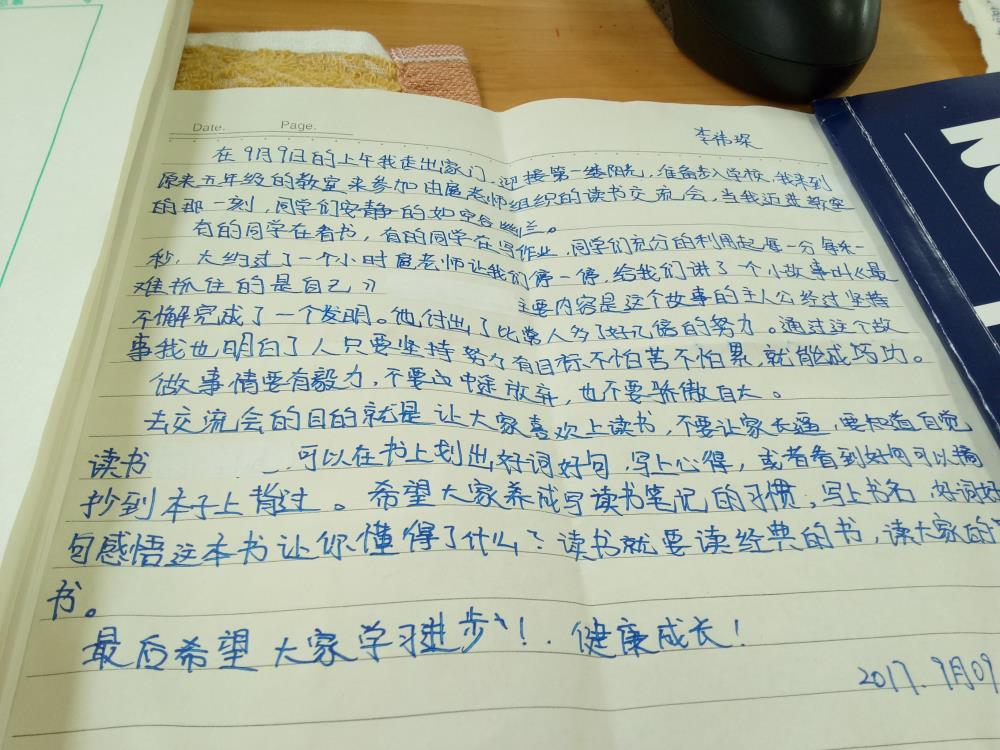 Date. Page.
李祎琛
在9月9日的上午我走出家门,迎接第一缕阳光,准备步入学校,我来到
原来五年级的教室来参加由扈老师组织的读书交流会,当我迈进教室
的那一刻,同学们安静的如空谷幽兰。
有的同学在看书,有的同学在写作业,同学们充分的利用起每一分每一
秒,大约过了一个小时扈老师让我们停一停,给我们讲了一个小故事叫《最
难抓住的是自己》
主要内容是这个故事的主人公经过坚持
不懈完成了一个发明。他付出了比常人多了好几倍的努力。通过这个故
事我也明白了人只要坚持努力有目标不怕苦不怕累,就能成功。
做事情要有毅力,不要中途放弃,也不要骄傲自大。
去交流会的目的就是让大家喜欢上读书,不要让家长逼,要知道自觉
读书
,可以在书上划出好词好句,写上心得,或者看到好句可以摘
抄到本子上背过。希望大家养成写读书笔记的习惯,写上书名,好词好
句感悟这本书让你懂得了什么?读书就要读经典的书,读大家的
书。
最后希望大家学习进步!健康成长!
2017.9月09